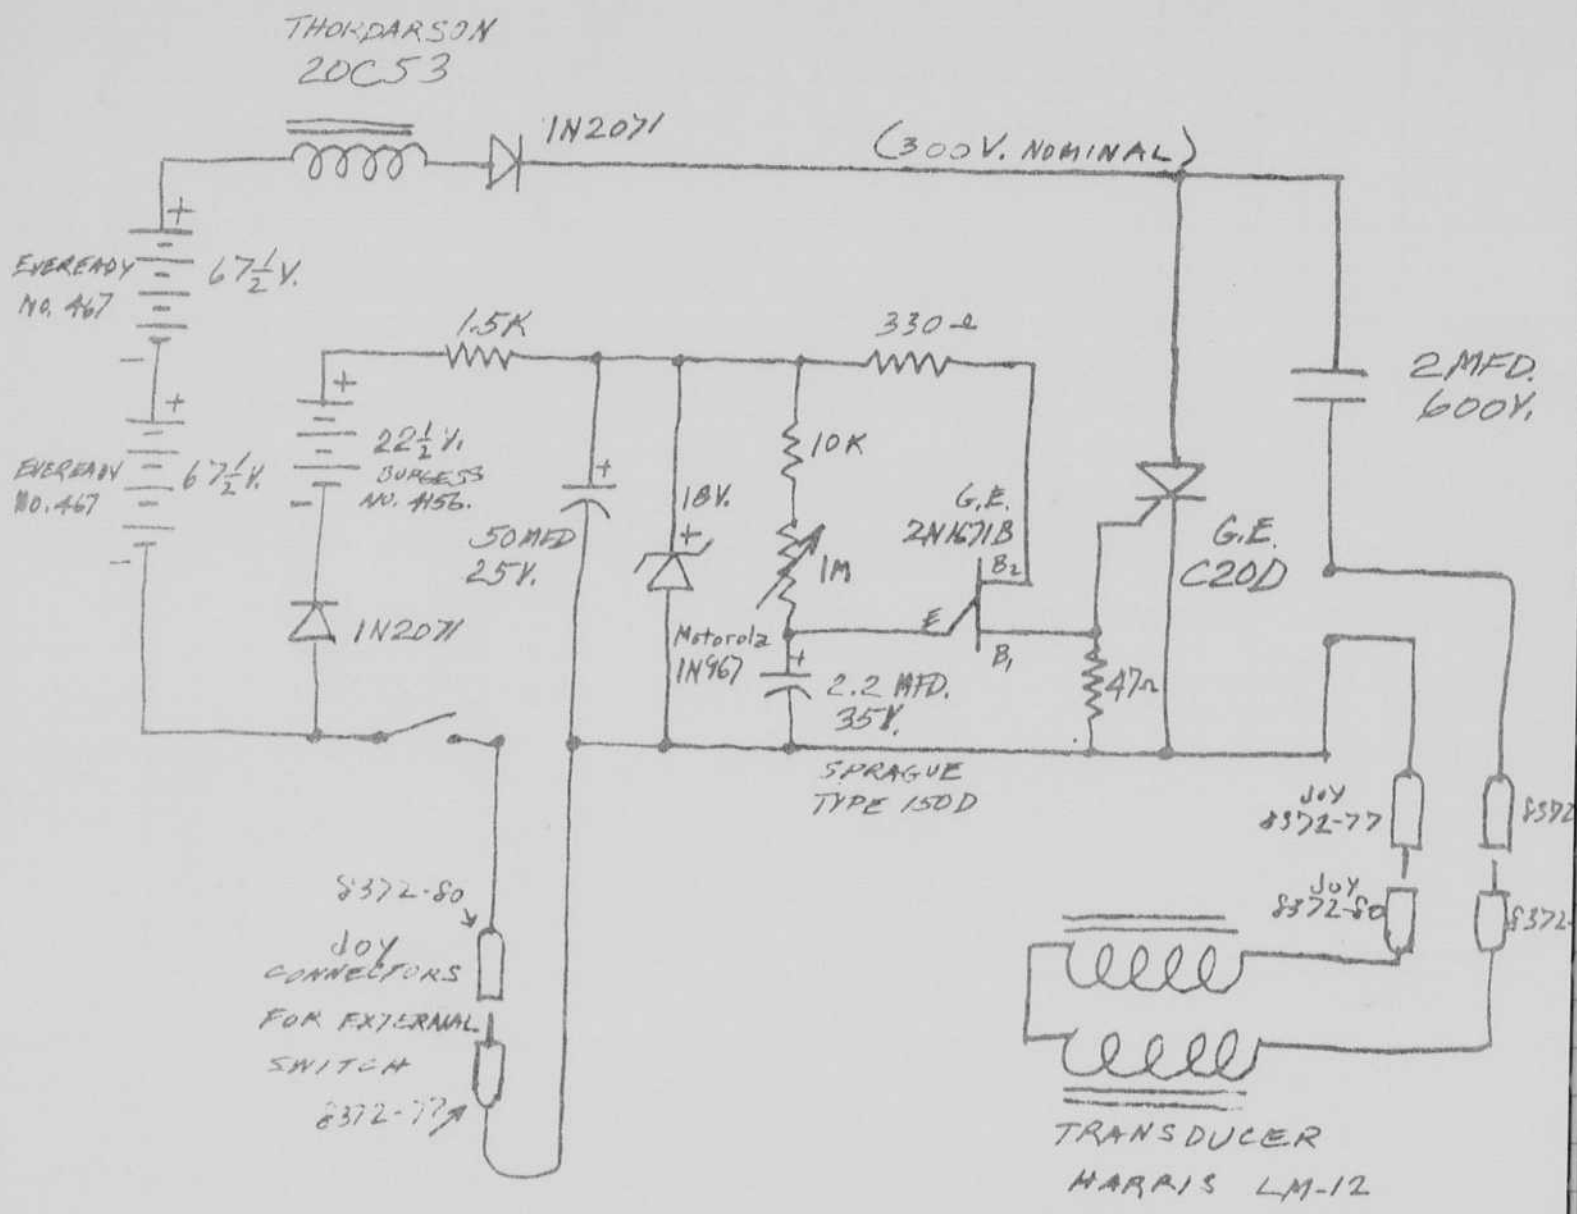 THORDARSON
20C53
1N2071
(300V. NOMINAL)
+
EVEREADY
NO. 467
67½V.
-
+
EVEREADY
NO. 467
67½V.
-
1.5K
330Ω
+
22½V.
BURGESS
NO. 4156.
-
1N2071
+
50MFD
25V.
18V.
+
Motorola
1N967
10K
1M
+
2.2 MFD.
35V.
SPRAGUE
TYPE 150D
G.E.
2N1671B
B2
E
B1
47Ω
G.E.
C20D
2MFD.
600V.
JOY
8372-77
8372
JOY
8372-80
8372-
8372-80
JOY
CONNECTORS
FOR EXTERNAL
SWITCH
8372-77
TRANSDUCER
HARRIS LM-12